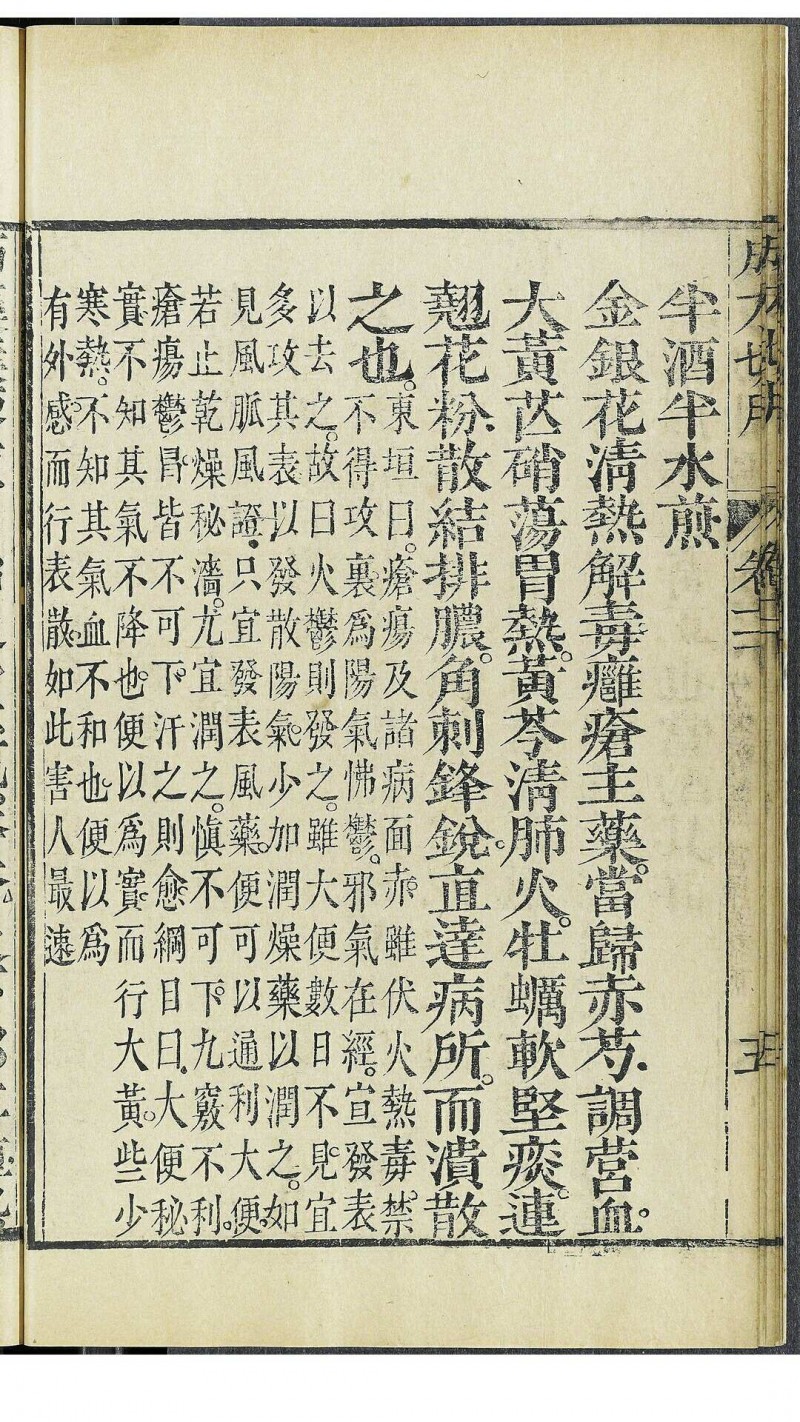 半酒半水煎
金銀花淸熱解毒癰瘡主藥。當歸赤芍、調營血。
大黃芒硝蕩胃熱。黃芩淸肺火。牡蠣軟堅痰。連
翹花粉、散結排膿。角刺鋒銳。直達病所。而潰散
之也。
東垣曰。瘡瘍及諸病面赤。雖伏火熱毒。禁
不得攻裏。爲陽氣怫鬱。邪氣在經。宜發表
以去之。故曰火鬱則發之。雖大便數日不見。宜
多攻其表。以發散陽氣。少加潤燥藥以潤之。如
見風脈風證。只宜發表風藥。便可以通利大便。
若止乾燥秘濇。尤宜潤之。愼不可下。九竅不利。
瘡瘍鬱冒。皆不可下。汗之則愈。綱目曰。大便秘
實。不知其氣不降也。便以爲實。而行大黃。些少
寒熱。不知其氣血不和也。便以爲
有外感。而行表散。如此害人最速
卷二
五